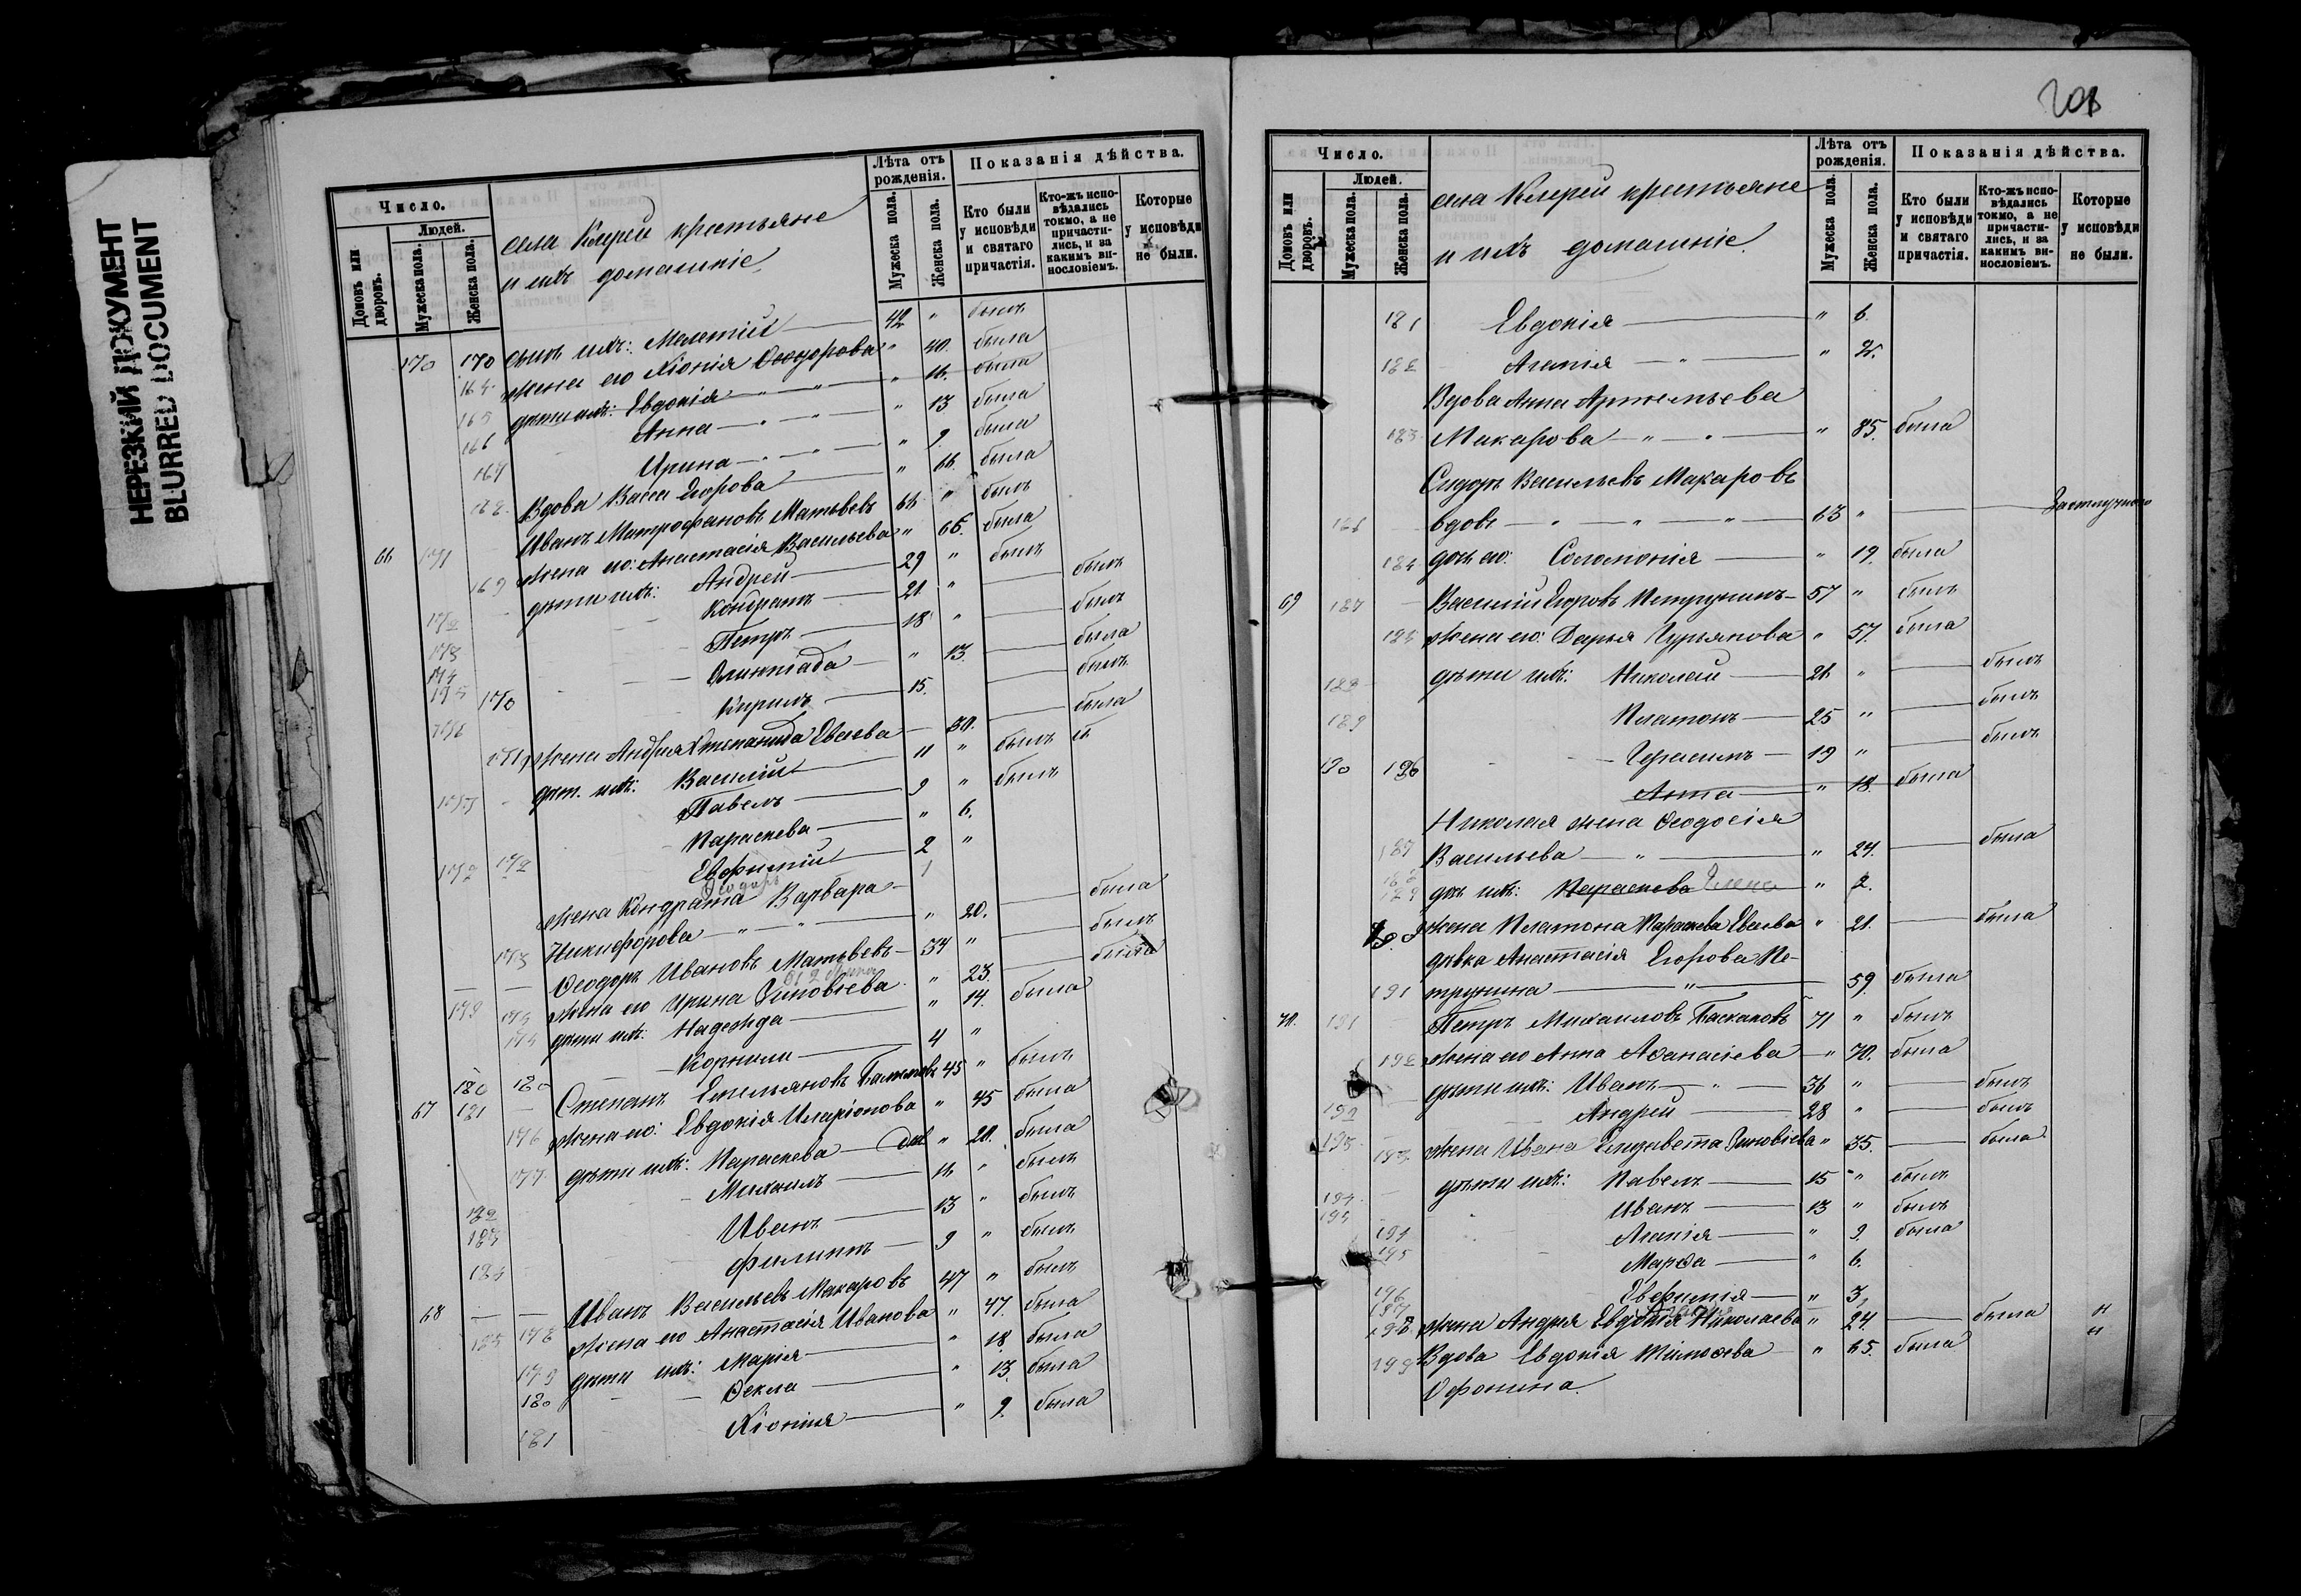 НЕРЕЗКИЙ ДОКУМЕНТ
BLURRED DOCUMENT
Число.
Людей.
Домовъ или дворовъ.
Мужеска пола.
Женска пола.
села Керей крестьяне
и ихъ домашніе
Лѣта отъ рожденія.
Мужеска пола.
Женска пола.
Показанія дѣйства.
Кто были у исповѣди и святаго причастія.
Кто-жъ исповѣдались токмо, а не причастились, и за какимъ винословіемъ.
Которые у исповѣди не были.
170 170 сынъ ихъ: Мелетій 42 " былъ
164 жена его Хіонія Ѳеодорова " 40. была
165 дѣти ихъ: Евдокія " 16. была
166 Анна " 13 была
167 Ирина " 9 была
168 Вдова Васса Егорова " 66. была
66 171 Иванъ Митрофановъ Матвѣевъ 66 " былъ
169 жена его: Анастасія Васильева " 65. была
172 дѣти ихъ: Андрей 29 " былъ
173 Кондратъ 21 " былъ
174 Петръ 18 " былъ
175 170 Олимпіада " 13. была
176 Кирилъ 15. былъ
171 жена Андрея Степанида Евсева 30. была
дѣт. ихъ: Василій 11 " былъ
Павелъ 9 " былъ
172 Параскева " 6.
Евфимій 2 "
Ѳеодоръ 1
жена Кондрата Варвара
173 Никифорова " 20. была
Ѳеодоръ Ивановъ Матвѣевъ 34 " былъ
179 174 жена его Ирина Зиновіева " 23. была
175 дѣти ихъ: Надежда " 14. была
180 180 Корнили 4 "
67 181 Степанъ Емельяновъ 45 " былъ
176 жена его: Евдокія Иларіонова " 45 была
177 дѣти ихъ: Параскева " 20. была
182 Михаилъ 16 " былъ
183 Иванъ 13 " былъ
184 Филиппъ 9 " былъ
68 Иванъ Васильевъ Макаровъ 47 " былъ
185 178 жена его Анастасія Иванова " 47. была
179 дѣти ихъ: Марія " 18 была
180 Ѳекла " 13. была
181 Хіонія " 9. была
208
Число.
Людей.
Домовъ или дворовъ.
Мужеска пола.
Женска пола.
села Керей крестьяне
и ихъ домашніе
Лѣта отъ рожденія.
Мужеска пола.
Женска пола.
Показанія дѣйства.
Кто были у исповѣди и святаго причастія.
Кто-жъ исповѣдались токмо, а не причастились, и за какимъ винословіемъ.
Которые у исповѣди не были.
181 Евдокія " 6.
182 Агапія " 2.
Вдова Анна Артемьева
183 Макарова " 85. была
Сидоръ Васильевъ Макаровъ
186 вдов. 63 " За отлучкою
184 дочь его: Соломонія " 19. была
69 187 Василій Егоровъ Петрунинъ 57 " былъ
185 жена его: Дарья Гурьянова " 57. была
188 дѣти ихъ: Николай 26 " былъ
189 Платонъ 25 " былъ
190 186 Герасимъ 19 " былъ
Анна " 18. была
Николая жена Ѳеодосія
187 Васильева " 24. была
188 189 дч. ихъ: Параскева Елена " 2.
жена Платона Параскева Евсева " 21. была
дѣвка Анастасія Егорова Пе-
191 трунина " 59. была
70. 191 Петръ Михаиловъ Баскаковъ 71 " былъ
192 жена его Анна Аѳанасіева " 70. была
192 дѣти ихъ: Иванъ 36 " былъ
Андрей 28 " былъ
193 193 жена Ивана Елизавета Зиновіева " 35. была
194 дѣти ихъ: Павелъ 15 " былъ
195 Иванъ 13 " былъ
194 Агапія " 9. была
195 Марѳа " 6.
196 Евфимія " 3,
197
198 жена Андрея Евдокія Николаева " 24. была
199 Вдова Евдокія Тимоѳеева " 65. была
Офонина.